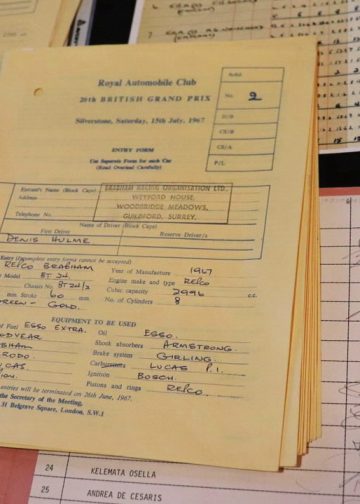 Royal Automobile Club
20th BRITISH GRAND PRIX
Silverstone, Saturday, 15th July, 1967
ENTRY FORM
Use Separate Form for each Car
(Read Overleaf Carefully)
No. 2
P/L
Entrant's Name (Block Caps)
Address
BRABHAM RACING ORGANISATION LTD.
WEYFORD HOUSE,
WOODBRIDGE MEADOWS,
GUILDFORD, SURREY.
Telephone No.
Name of Driver (Block Caps)
First Driver
Reserve Driver/s
DENIS HULME
Entry (Incomplete entry forms cannot be accepted)
REPCO BRABHAM
Year of Manufacture 1967
Model BT 24
Engine make and type REPCO
Chassis No. BT24/2
Cubic capacity 2996 cc.
mm Stroke 60 mm
No. of Cylinders 8
GREEN - GOLD.
EQUIPMENT TO BE USED
of Fuel ESSO EXTRA.
Oil ESSO.
Shock absorbers ARMSTRONG.
Brake system GIRLING.
LUCAS P.I.
Ignition BOSCH.
Pistons and rings REPCO.
entries will be terminated on 26th June, 1967.
the Secretary of the Meeting,
31 Belgrave Square, London, S.W.1
24 KELEMATA OSELLA
25 ANDREA DE CESARIS